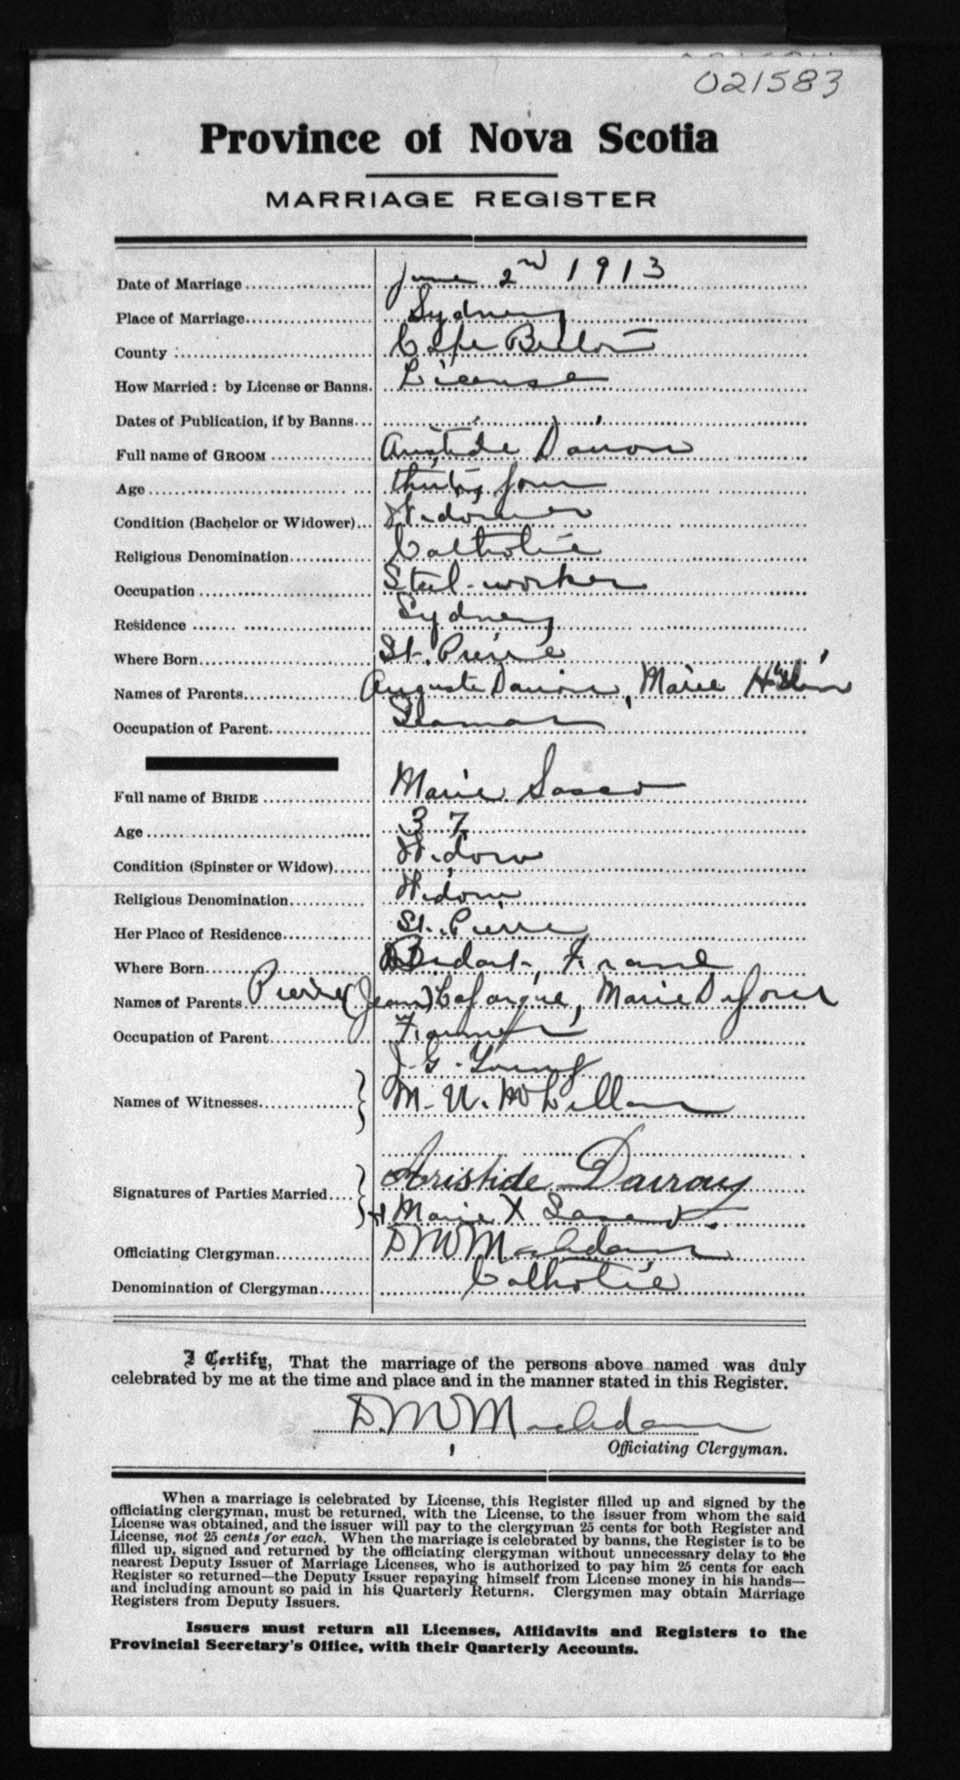 021583
Province of Nova Scotia
MARRIAGE REGISTER
Date of Marriage June 2nd 1913
Place of Marriage Sydney
County Cape Breton
How Married: by License or Banns. License
Dates of Publication, if by Banns
Full name of GROOM Aristide Dairou
Age thirty four
Condition (Bachelor or Widower) Widower
Religious Denomination Catholic
Occupation Steel-worker
Residence Sydney
Where Born St. Pierre
Names of Parents Auguste Dairou, Marie
Occupation of Parent Seaman
Full name of BRIDE Marie
Age 37
Condition (Spinster or Widow) Widow
Religious Denomination Widow
Her Place of Residence St. Pierre
Where Born Bidart, France
Names of Parents Pierre (Jean) Lafargue, Marie
Occupation of Parent Farmer
J. G. Young
Names of Witnesses M. U. McLellan
Signatures of Parties Married Aristide Dairou
Marie X
Officiating Clergyman D M MacAdam
Denomination of Clergyman Catholic
I Certify, That the marriage of the persons above named was duly
celebrated by me at the time and place and in the manner stated in this Register.
D. M MacAdam
Officiating Clergyman.
When a marriage is celebrated by License, this Register filled up and signed by the
officiating clergyman, must be returned, with the License, to the issuer from whom the said
License was obtained, and the issuer will pay to the clergyman 25 cents for both Register and
License, not 25 cents for each. When the marriage is celebrated by banns, the Register is to be
filled up, signed and returned by the officiating clergyman without unnecessary delay to the
nearest Deputy Issuer of Marriage Licenses, who is authorized to pay him 25 cents for each
Register so returned—the Deputy Issuer repaying himself from License money in his hands—
and including amount so paid in his Quarterly Returns. Clergymen may obtain Marriage
Registers from Deputy Issuers.
Issuers must return all Licenses, Affidavits and Registers to the
Provincial Secretary's Office, with their Quarterly Accounts.